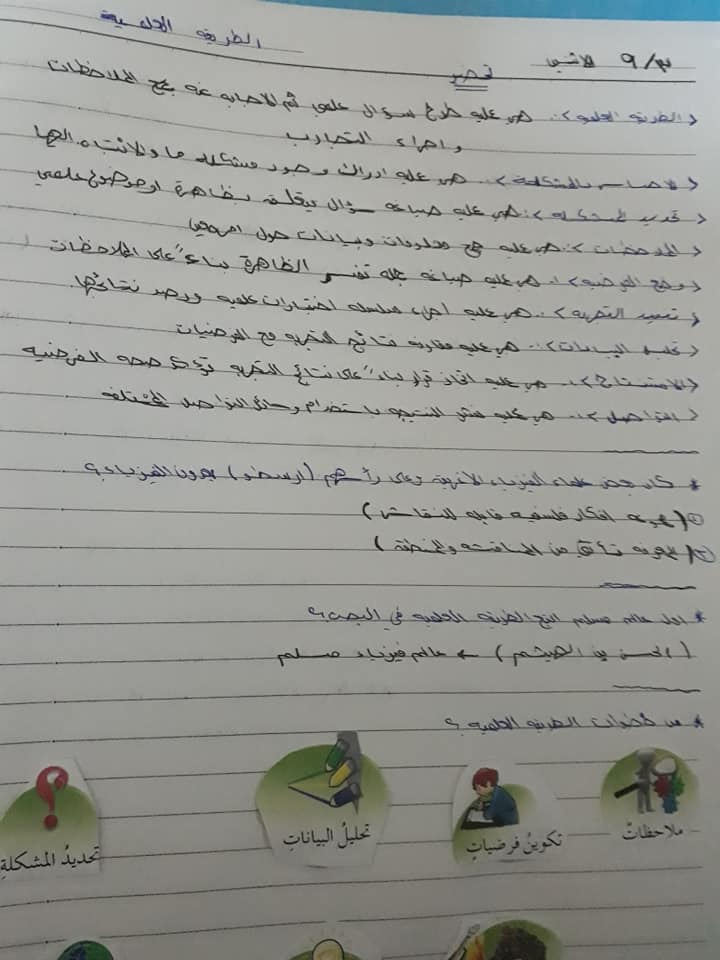 الطريقة العلمية
٩/٣ الاثنين
تحضير
<الطريقة العلمية>: هي عملية طرح سؤال علمي ثم الاجابة عنه بجمع الملاحظات
واجراء التجارب
<الاحساس بالمشكلة>: هي عملية ادراك وجود مشكلة ما والانتباه اليها
<تحديد المشكلة>: هي عملية صياغة سؤال يتعلق بظاهرة او موضوع علمي
<الملاحظات>: هي عملية جمع معلومات وبيانات حول
<وضع الفرضية>: هي عملية صياغة جملة تفسر الظاهرة بناء" على الملاحظات
<تنفيذ التجربة>: هي عملية اجراء سلسلة اختبارات علمية ورصد نتائجها
<تحليل البيانات>: هي عملية مقارنة نتائج التجربة مع الفرضيات
<الاستنتاج>: هي عملية اتخاذ قرار بناء" على نتائج التجربة تؤكد صحة الفرضية
<التواصل>: هي عملية نشر النتيجة باستخدام وسائل التواصل المختلفة
* كان بعض علماء الفيزياء وعلى رأسهم (ارسطو) يرون الفيزياء؟
① (مجموعة افكار فلسفية قابلة للنقاش)
② (معرفة تتأتى من المناقشة والمنطق)
* اول عالم مسلم اتبع الطريقة العلمية في البحث؟
(الحسن بن الهيثم) ← عالم فيزياء مسلم
* من خطوات الطريقة العلمية؟
ملاحظات تكوينُ فرضياتٍ تحليلُ البياناتِ تحديدُ المشكلةِ